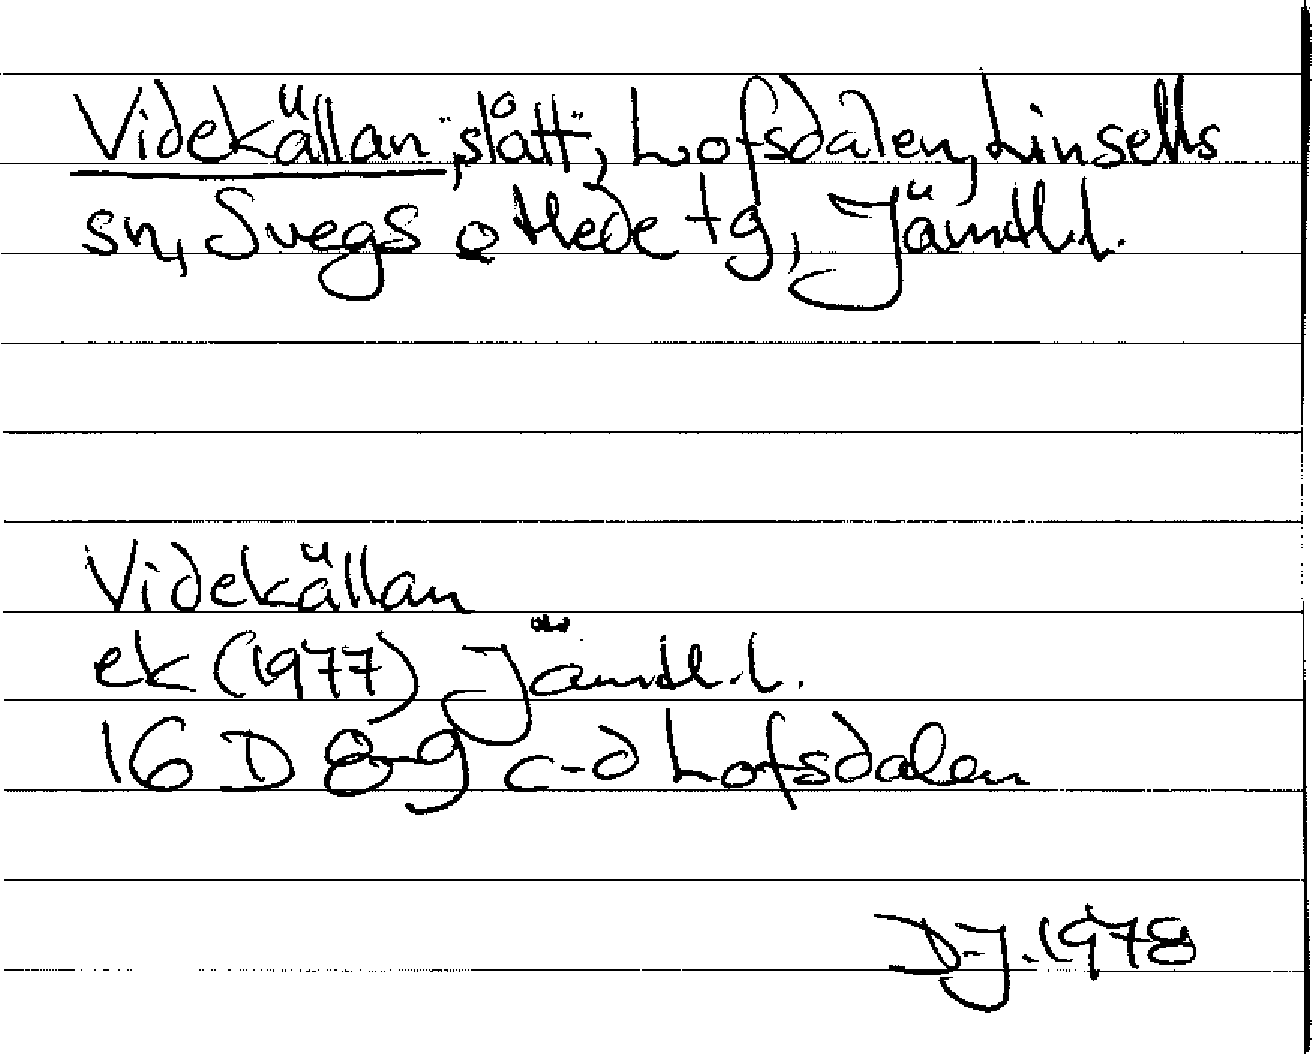 Videkällan, "slått", Lofsdalen, Linsells
sn, Svegs o Hede tg, Jämtl.l.
Videkällan
ek (1977) Jämtl.l.
16 D 8-9 c-d Lofsdalen
D-J. 1978